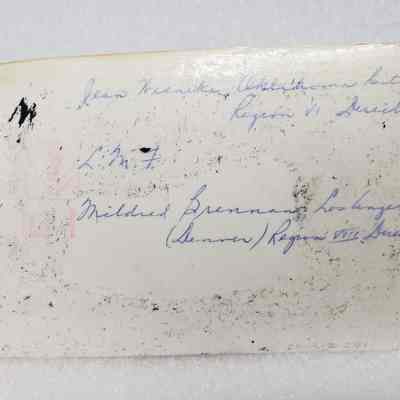 Jean Wisniker, Oklahoma
Region VI Direct
L.M.F.
Mildred Brennan, Los Angeles
(Denver) Region VIII Direc